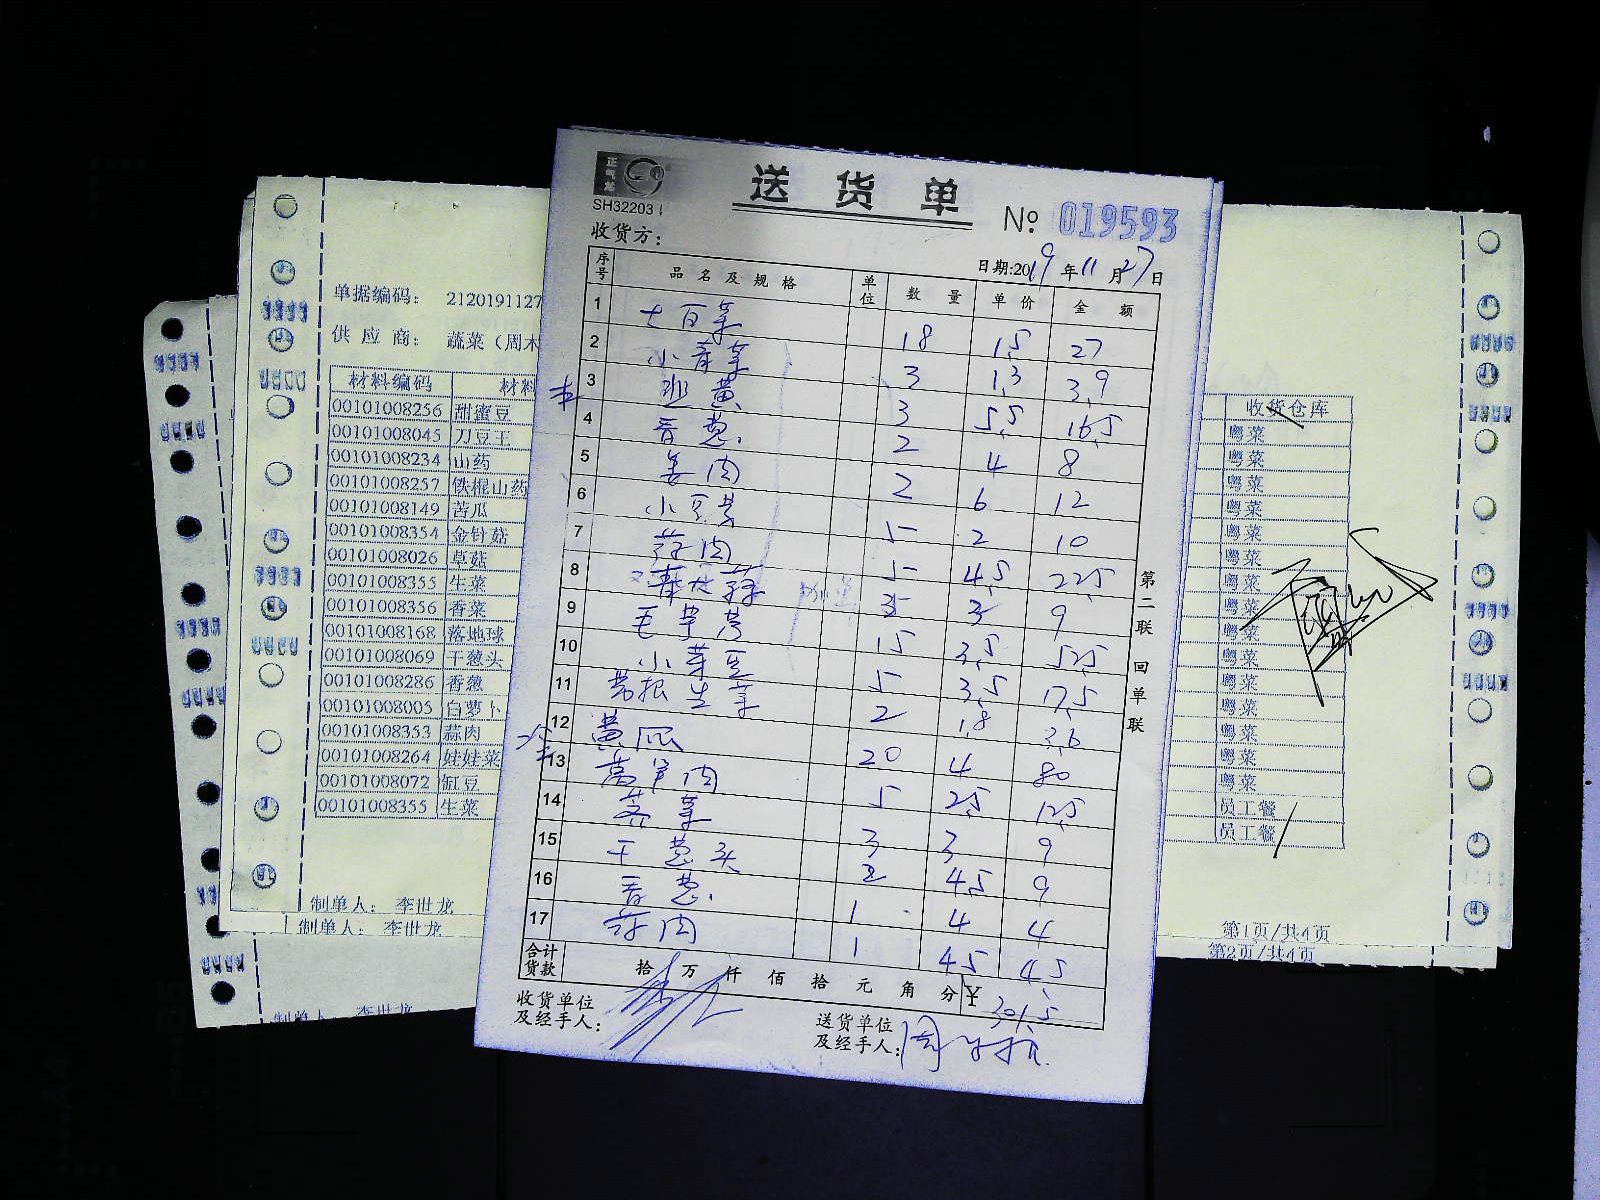 正气龙
SH32203
送货单
№ 019593
收货方:
日期:2019年11月27日
序号 品名及规格 单位 数量 单价 金额
1 土百菜 18 1.5 27
2 小青菜 3 1.3 3.9
3 韭黄 3 5.5 16.5
4 香葱 2 4 8
5 姜肉 2 6 12
6 小豆芽 5 2 10
7 蒜肉 5 4.5 22.5
8 3 3 9
9 毛芋艿 15 3.5 52.5
10 小芽豆 5 3.5 17.5
11 生菜 2 1.8 3.6
12 黄瓜 20 4 80
13 莴笋肉 5 2.5 12.5
14 荠菜 3 3 9
15 干葱头 2 4.5 9
16 香葱 1 4 4
17 蒜肉 1 4.5 4.5
合计货款 拾 万 仟 佰 拾 元 角 分 ¥ 301.5
收货单位及经手人:
送货单位及经手人:
第二联 回单联
单据编码: 2120191127
供应商: 蔬菜(周木
材料编码 材料 收货仓库
00101008256 甜蜜豆 粤菜
00101008045 刀豆王 粤菜
00101008234 山药 粤菜
00101008257 铁棍山药 粤菜
00101008149 苦瓜 粤菜
00101008354 金针菇 粤菜
00101008026 草菇 粤菜
00101008355 生菜 粤菜
00101008356 香菜 粤菜
00101008168 落地球 粤菜
00101008069 干葱头 粤菜
00101008286 香葱 粤菜
00101008005 白萝卜 粤菜
00101008353 蒜肉 粤菜
00101008264 娃娃菜 粤菜
00101008072 缸豆 员工餐
00101008355 生菜 员工餐
制单人: 李世龙
第1页/共4页
制单人: 李世龙
第2页/共4页
制单人: 李世龙